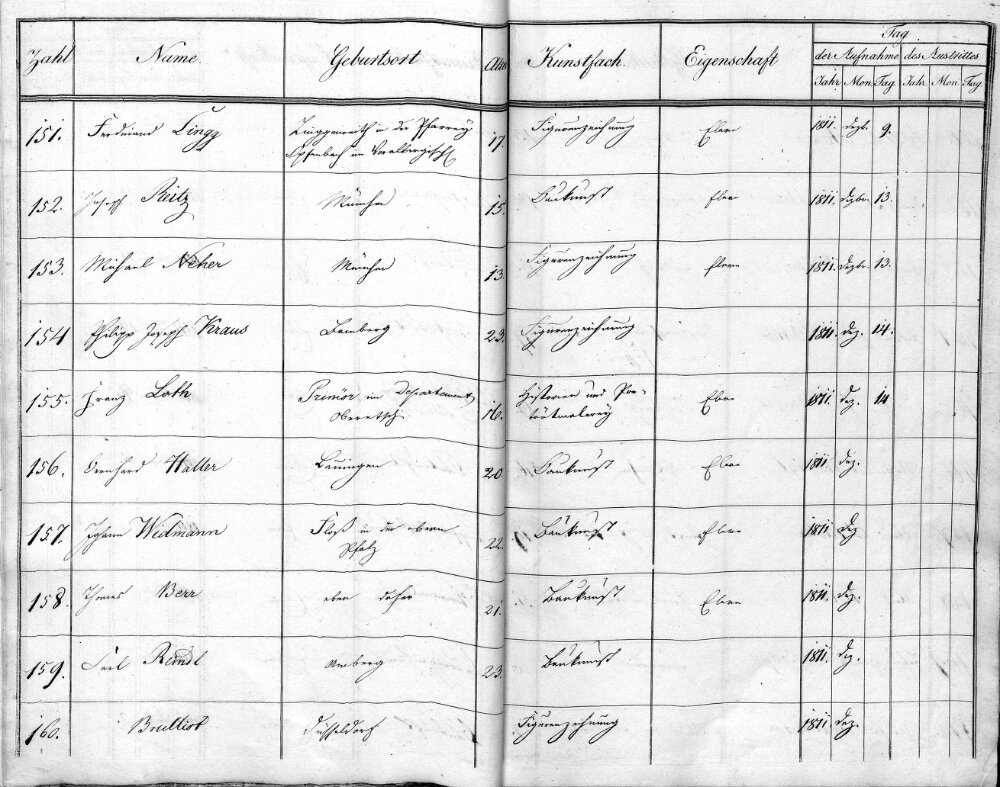 Tag
Zahl Name. Geburtsort Alter Kunstfach. Eigenschaft der Aufnahme des Austrittes
Jahr Mon. Tag Jahr. Mon. Tag.
151. Ferdinand Lingg in der Pfarrey 17. Figurenzeichnung Eleve 1811. Dezb. 9.
im Vorarlbergischen
152. Joseph Reitz München 15. Baukunst Eleve 1811. Dezbr. 13.
153. Michael Neher München 13. Figurenzeichnung Eleve 1811. Dezbr. 13.
154 Philipp Joseph Kraus Bamberg 23. Figurenzeichnung 1811. Dez. 14.
155. Franz Loth Primör im Departament, 16. Historien und Por= Eleve 1811. Dez. 14
Oberetsch. traitmalerey
156. Bernhard Haller Lauingen 20. Baukunst Eleve 1811. Dez.
157. Johann Widmann Floß in der obern 22. Baukunst Eleve 1811. Dez
Pfalz
158. Thomas Berr eben daher 21. Baukunst Eleve 1811. Dez.
159. Karl Reindl Amberg 23. Baukunst 1811. Dez.
160. Brulliot Düsseldorf Figurenzeichnung 1811. Dez.